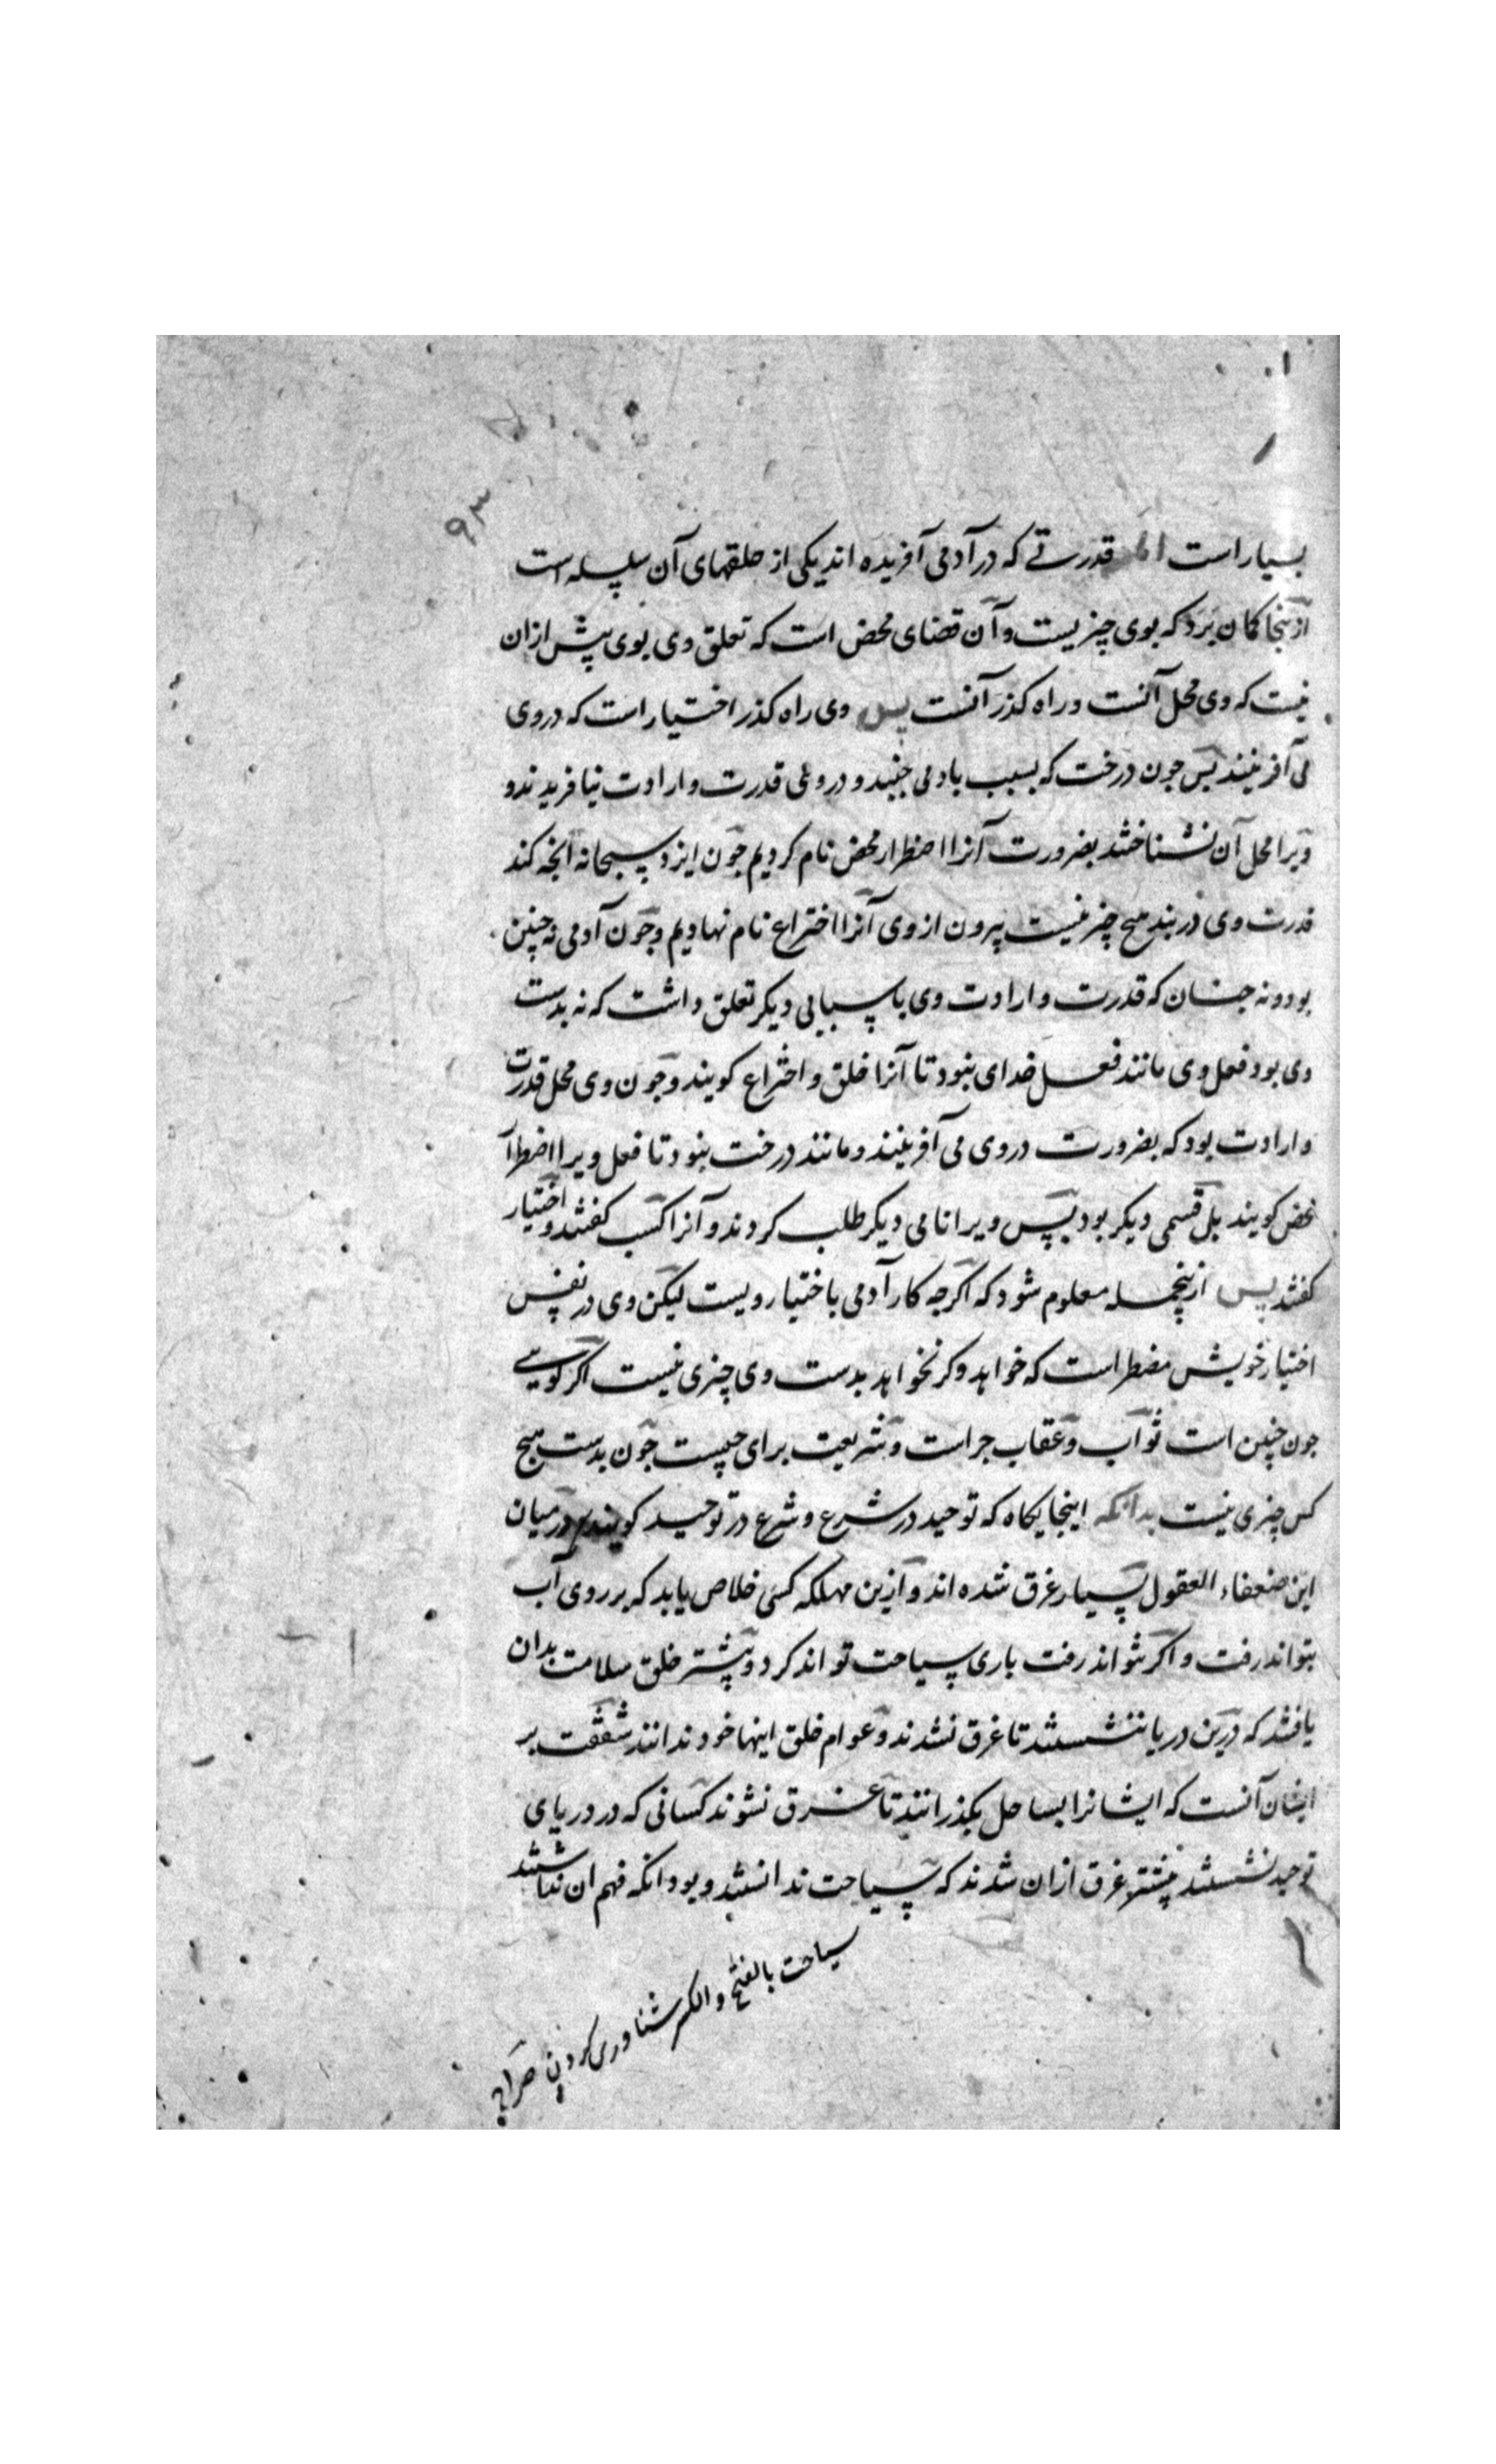 ۹۳
بسیار است اما قدرتے که در آدمی آفریده اند یکی از حلقهای آن سلسله است
ازینجا کمان برد که بوی چیزیست و آن قضای محض است که تعلق وی بوی پیش ازان
نیست که وی محل آنست و راه کذر آنست پس وی راه کذر اختیار است که در وی
می آفرینند پس جون درخت که بسبب باد می جنبد و در وی قدرت و ارادت نیافریدند و
ویرا محل آن نشناختند بضرورت آنرا اضطرار محض نام کردیم جون ایزد سبحانه آنجه کند
قدرت وی در بند هیج چیز نیست بیرون از وی آنرا اختراع نام نهادیم و جون آدمی نه چنین
بود و نه جنان که قدرت و ارادت وی باسبابی دیکر تعلق داشت که نه بدست
وی بود فعل وی مانند فعل خدای نبود تا آنرا خلق و اختراع کویند و جون وی محل قدرت
و ارادت بود که بضرورت در وی می آفرینند و مانند درخت نبود تا فعل ویرا اضطرار
محض کویند بل قسمی دیکر بود پس ویرا نامی دیکر طلب کردند و آنرا کسب کفتند و اختیار
کفتند پس ازینجمله معلوم شود که اکرجه کار آدمی باختیار ویست لیکن وی در نفس
اختیار خویش مضطر است که خواهد و کر نخواهد بدست وی چیزی نیست اکر کویے
جون چنین است ثواب و عقاب جراست و شریعت برای چیست جون بدست هیج
کس چیزی نیست بدانکه اینجایکاه که توحید در شرع و شرع در توحید کویند در میان
این ضعفاء العقول بسیار غرق شده اند و ازین مهلکه کسی خلاص یابد که بر روی آب
بتواند رفت و اکر نتواند رفت باری سیاحت تواند کرد و بیشتر خلق سلامت بدان
یافتند که درین دریا ننشستند تا غرق نشدند و عوام خلق اینها خود ندانند شفقت بر
ایشان آنست که ایشانرا بساحل بکذرانند تا غرق نشوند کسانی که در دریای
توحید نشستند بیشتر غرق ازان شدند که سیاحت ندانستند و بود انکه فهم ان نداشتند
سیاحت بالفتح و الکسر شناوری کردن صراح